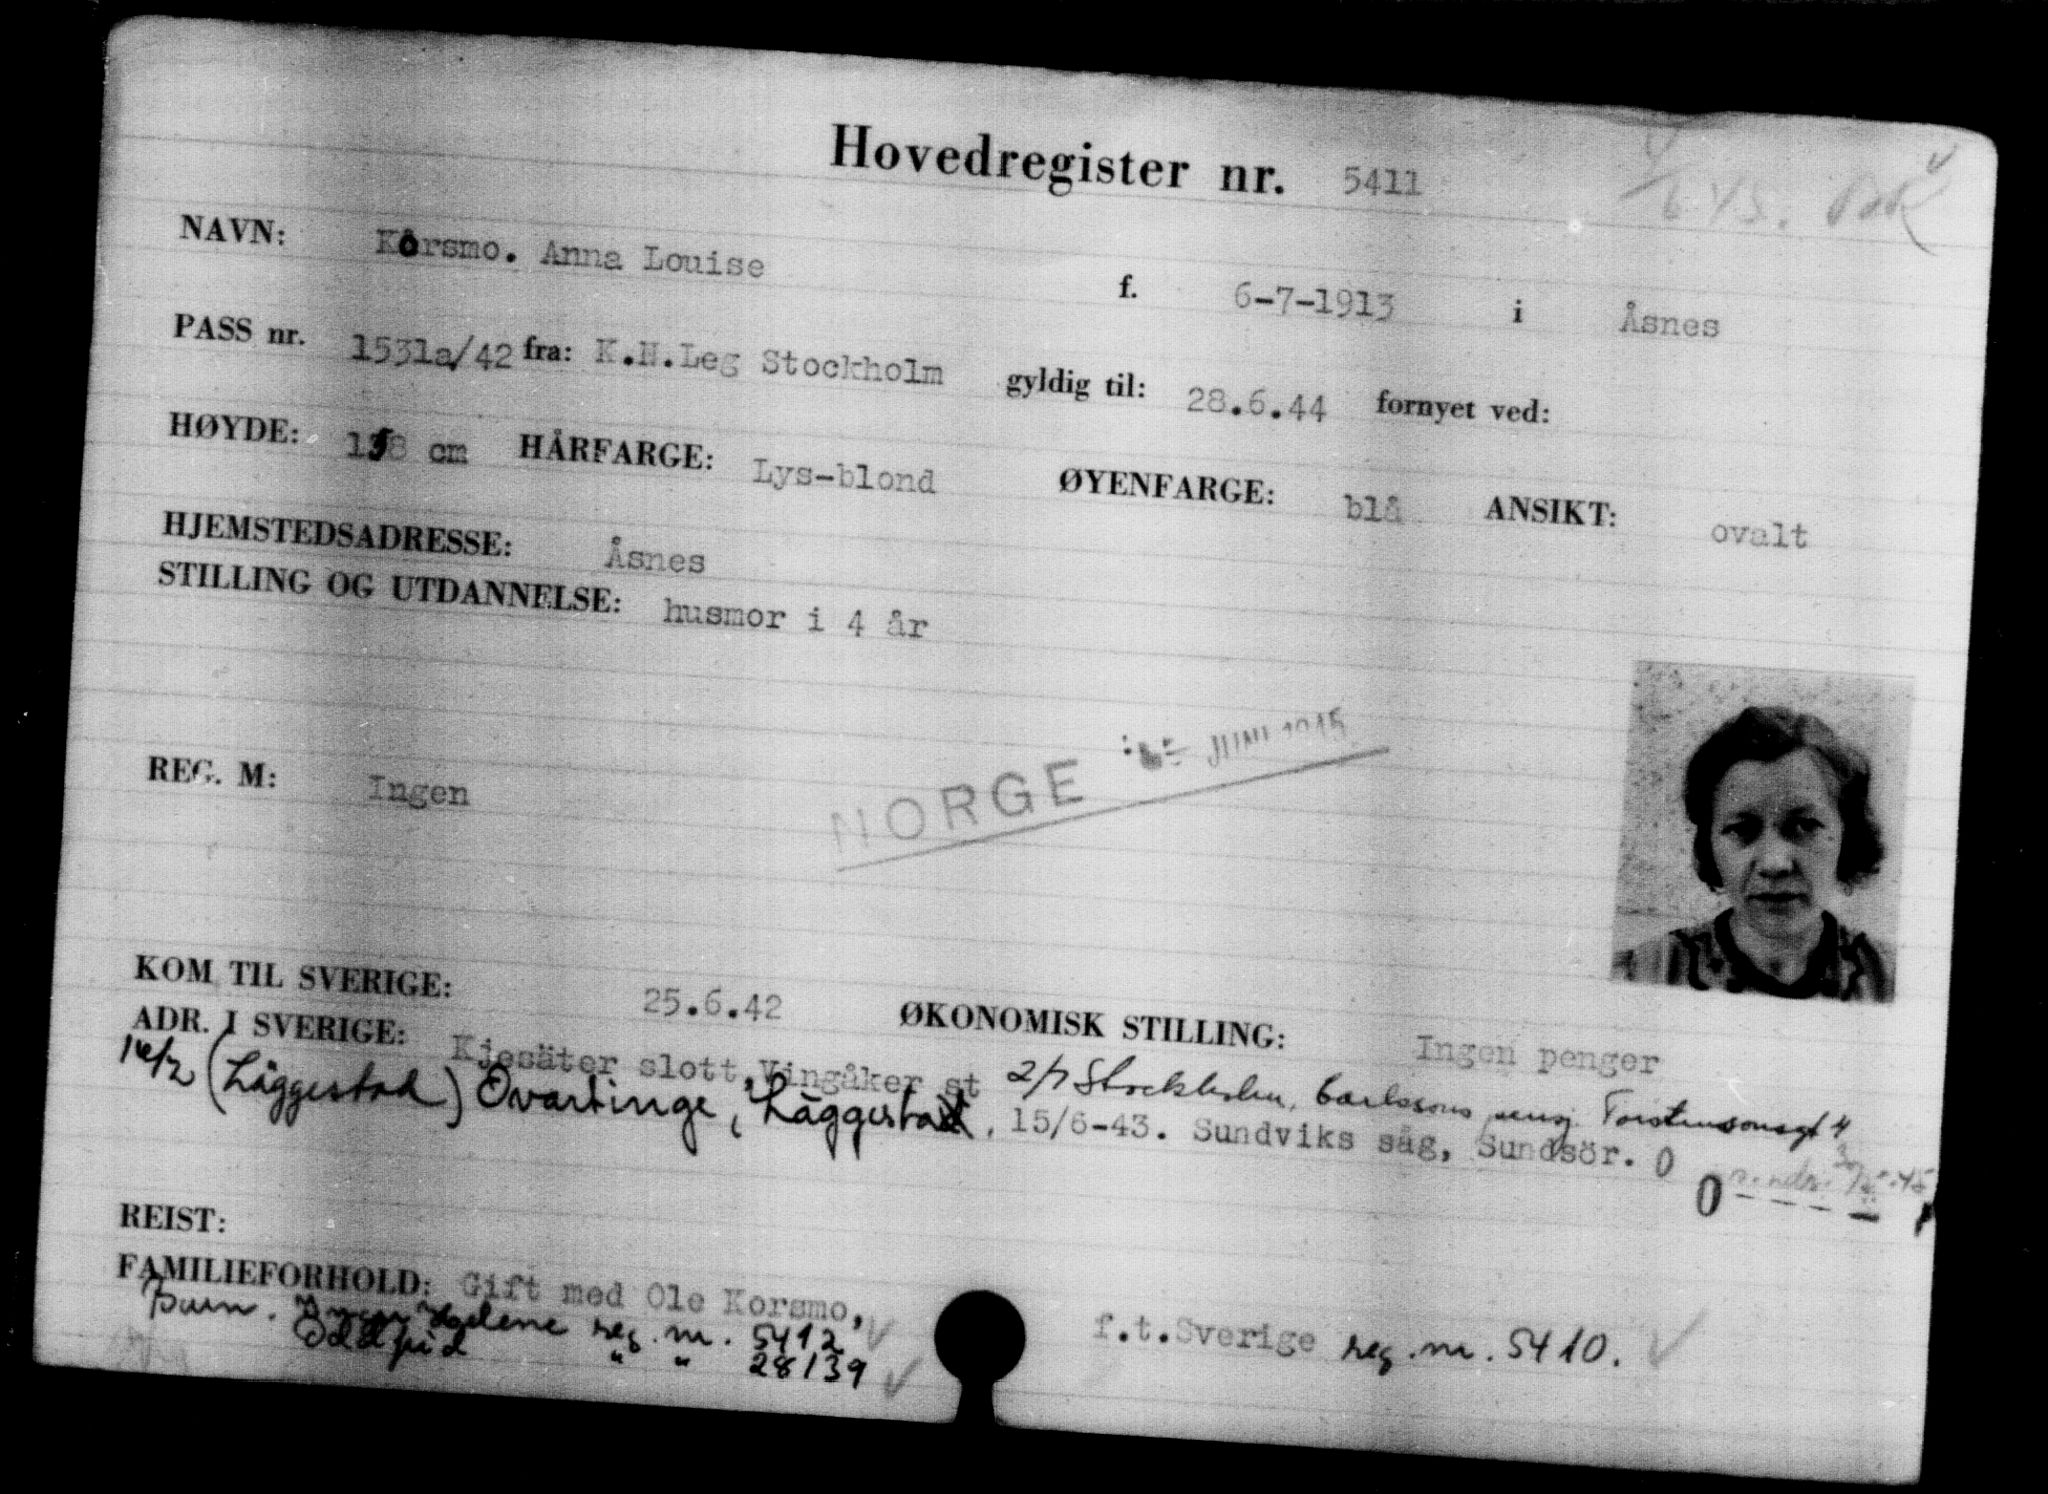 Hovedregister nr. 5411
NAVN: Korsmo. Anna Louise f. 6-7-1913 i Åsnes
PASS nr. 1531a/42 fra: K.N.Leg Stockholm gyldig til: 28.6.44 fornyet ved:
HØYDE: 158 cm HÅRFARGE: Lys-blond ØYENFARGE: blå ANSIKT: ovalt
HJEMSTEDSADRESSE: Åsnes
STILLING OG UTDANNELSE: husmor i 4 år
NORGE JUNI 1945
REG. M: Ingen
KOM TIL SVERIGE: 25.6.42 ØKONOMISK STILLING: Ingen penger
ADR. I SVERIGE: Kjesäter slott, Vingåker st 2/7 Stockholm, Carlssons pensj. Torstensonsgt 4
(Läggestad) Ovartinge, Läggesta, 15/6-43. Sundviks såg, Sundsör. O
REIST:
FAMILIEFORHOLD: Gift med Ole Korsmo, f.t.Sverige reg. nr. 5410.
Barn. Helene reg. nr. 5412
" " 28139